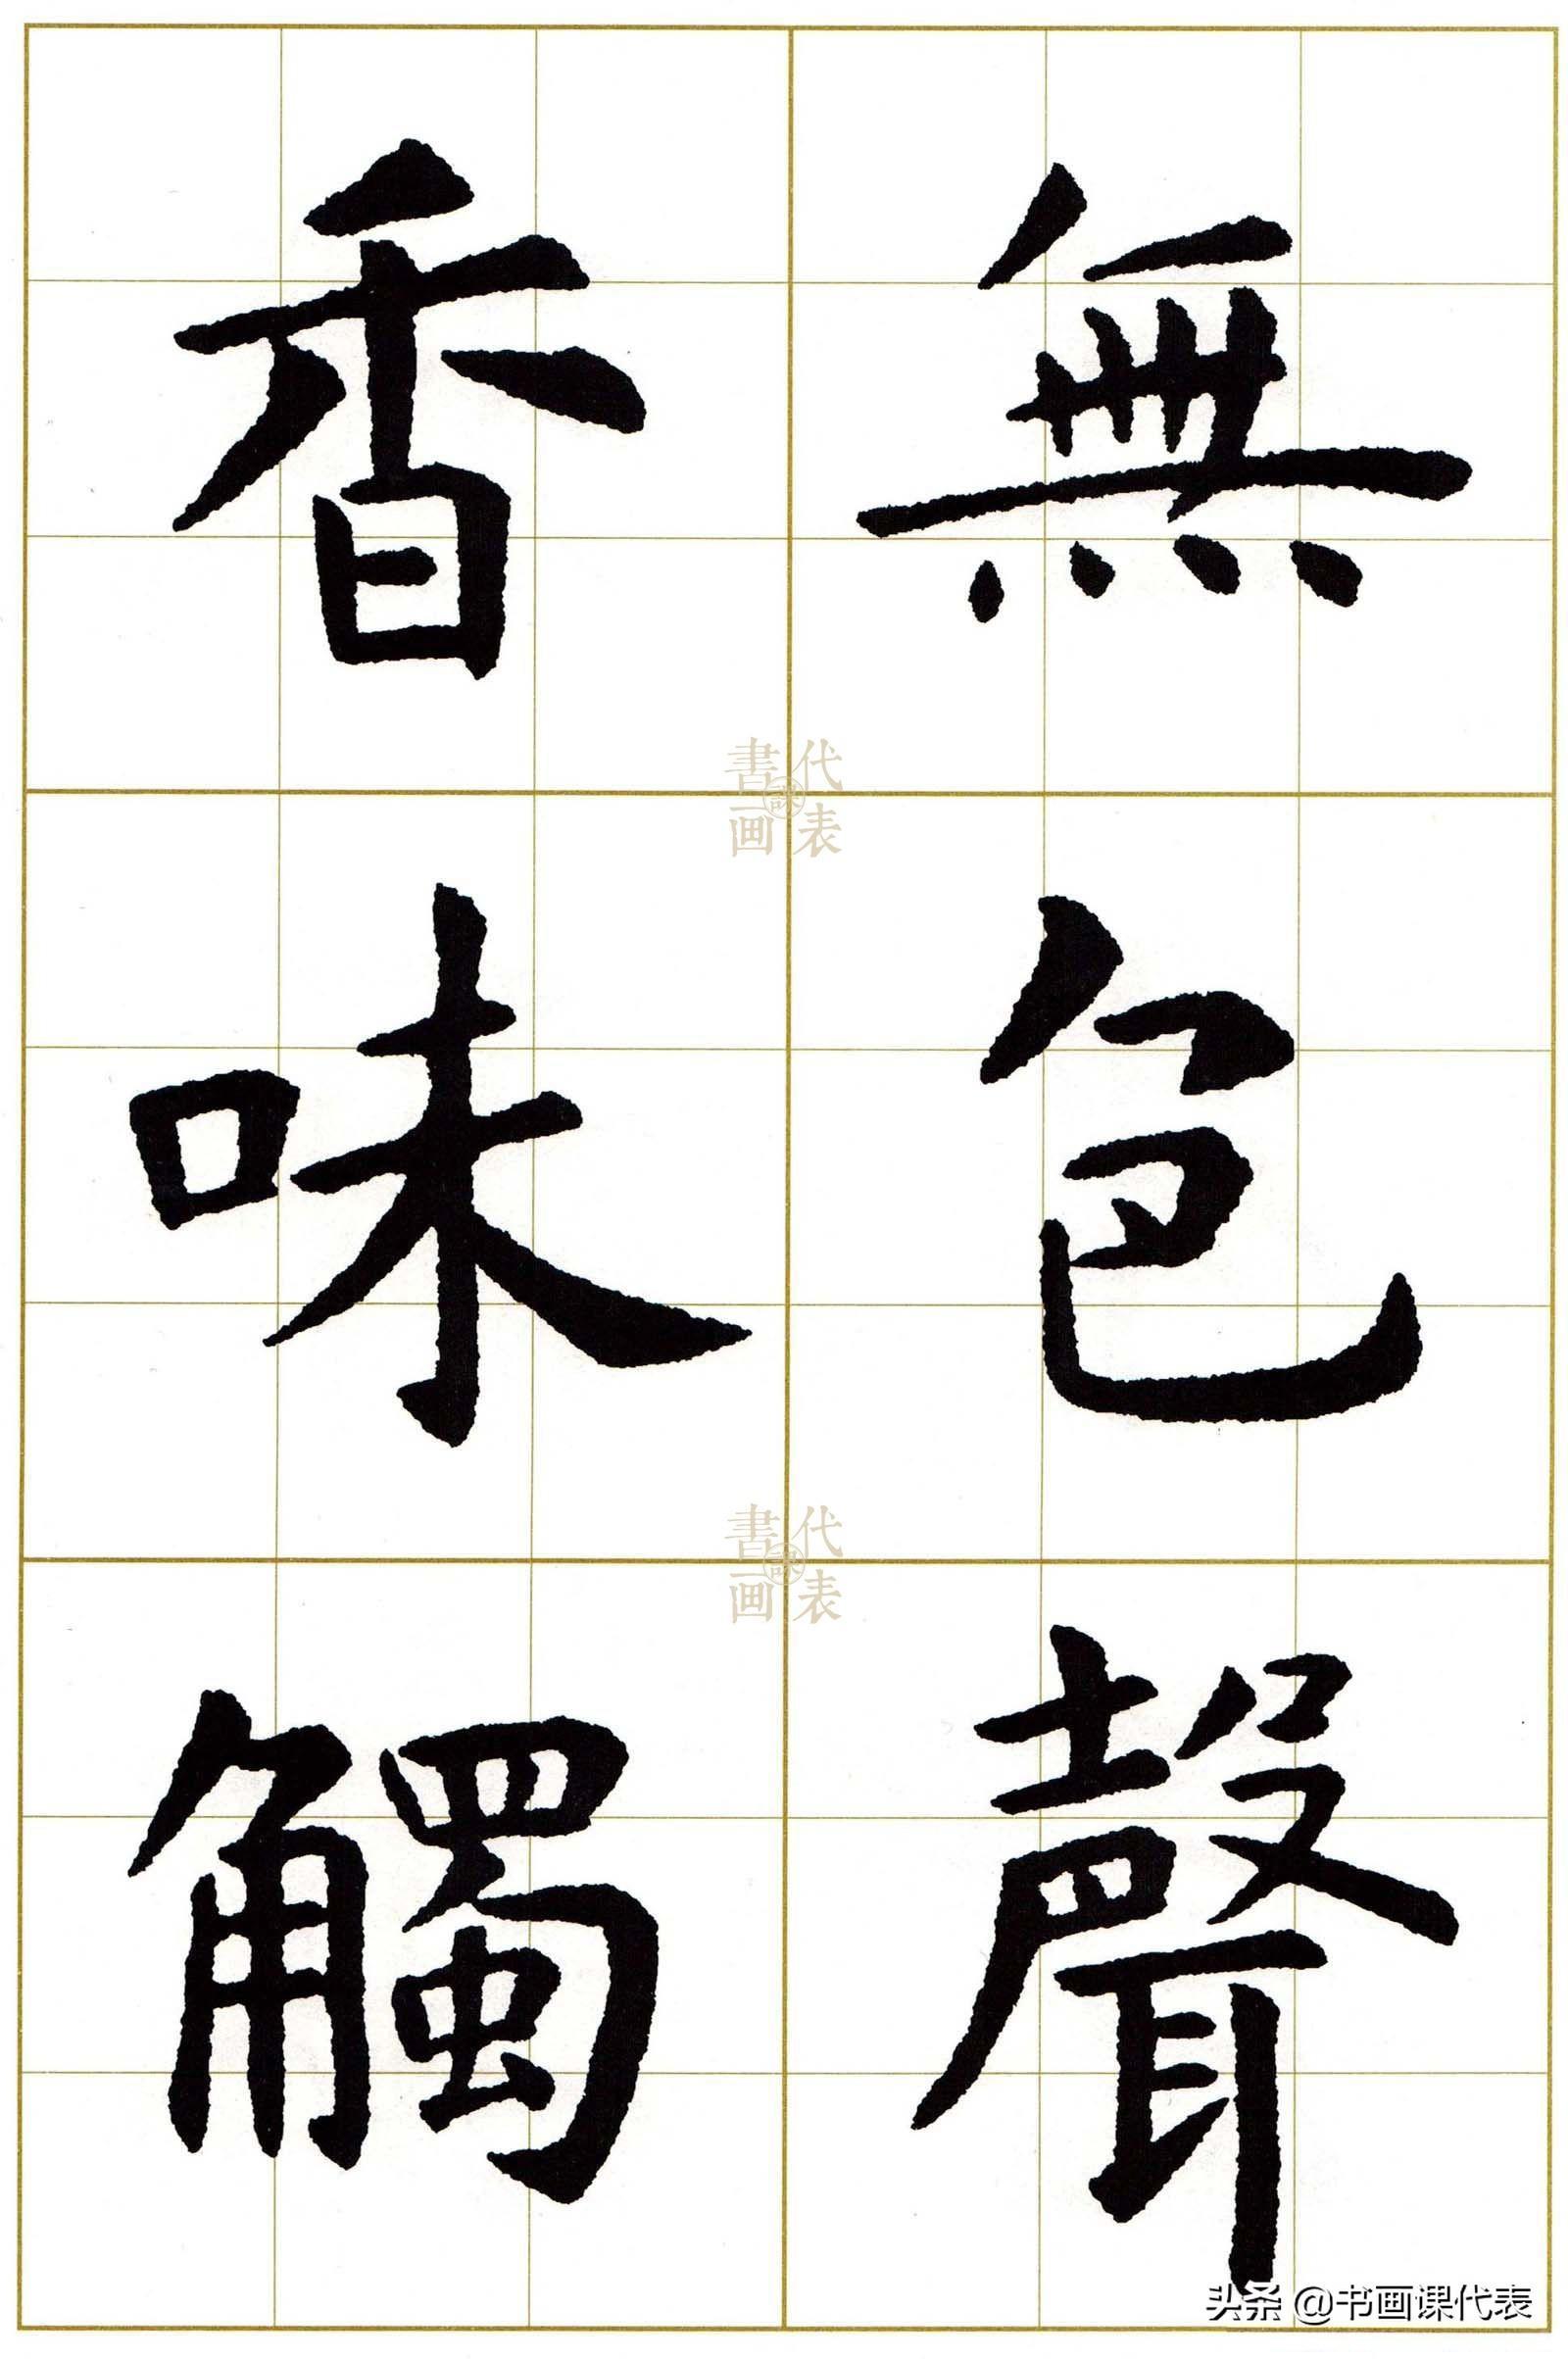 無色聲
香味觸
書画課代表
書画課代表
头条 @书画课代表